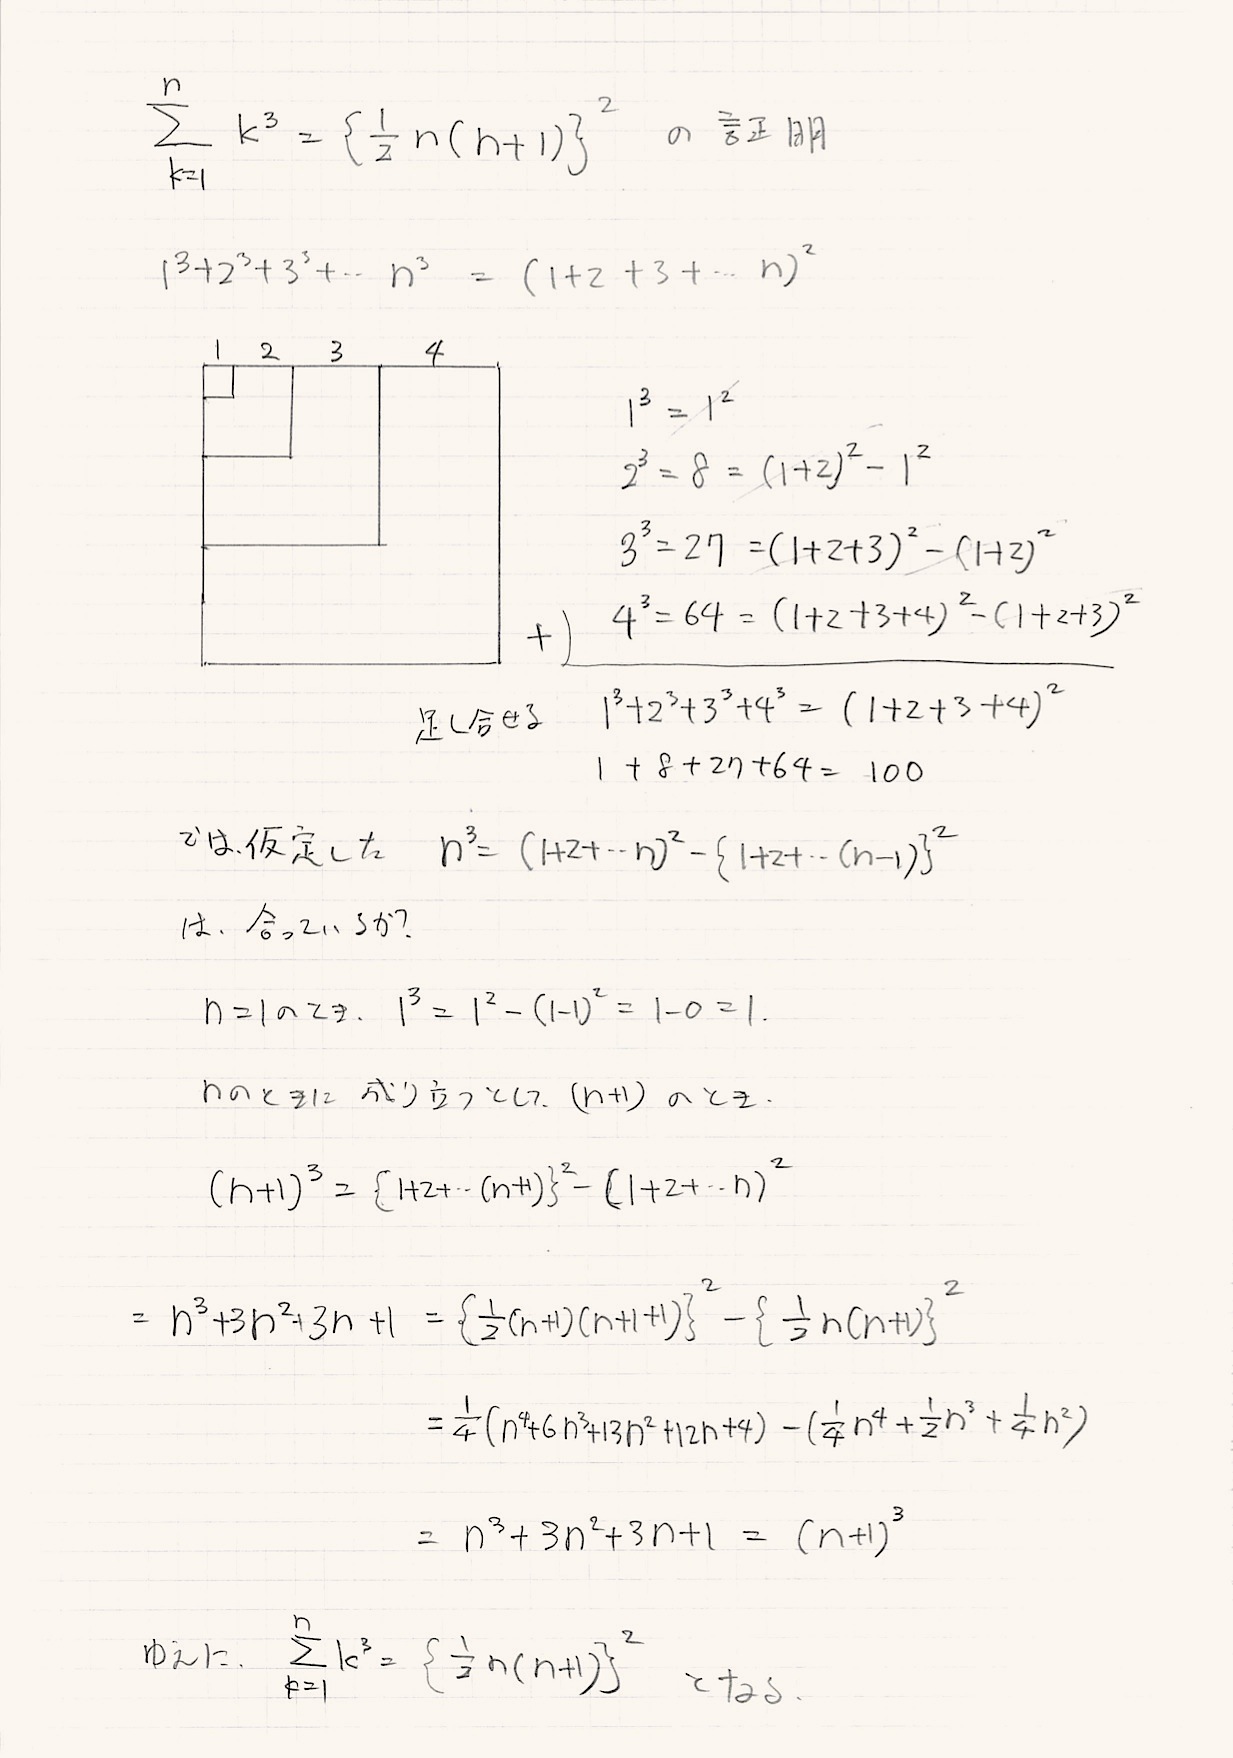 n
Σ k³ = {1/2 n(n+1)}² の証明
k=1
1³+2³+3³+‥ n³ = (1+2+3+‥ n)²
1 2 3 4
1³ = 1²
2³ = 8 = (1+2)² - 1²
3³ = 27 = (1+2+3)² - (1+2)²
+) 4³ = 64 = (1+2+3+4)² - (1+2+3)²
足し合せる 1³+2³+3³+4³ = (1+2+3+4)²
1 + 8 + 27 + 64 = 100
では、仮定した n³ = (1+2+‥n)² - {1+2+‥(n-1)}²
は、合っているか?
n=1のとき、1³ = 1² - (1-1)² = 1-0 = 1.
nのときに成り立つとして、(n+1)のとき、
(n+1)³ = {1+2+‥(n+1)}² - (1+2+‥n)²
= n³+3n²+3n+1 = {1/2(n+1)(n+1+1)}² - {1/2 n(n+1)}²
= 1/4(n⁴+6n³+13n²+12n+4) - (1/4n⁴+1/2n³+1/4n²)
= n³+3n²+3n+1 = (n+1)³
n
ゆえに、Σ k³ = {1/2 n(n+1)}² となる.
k=1